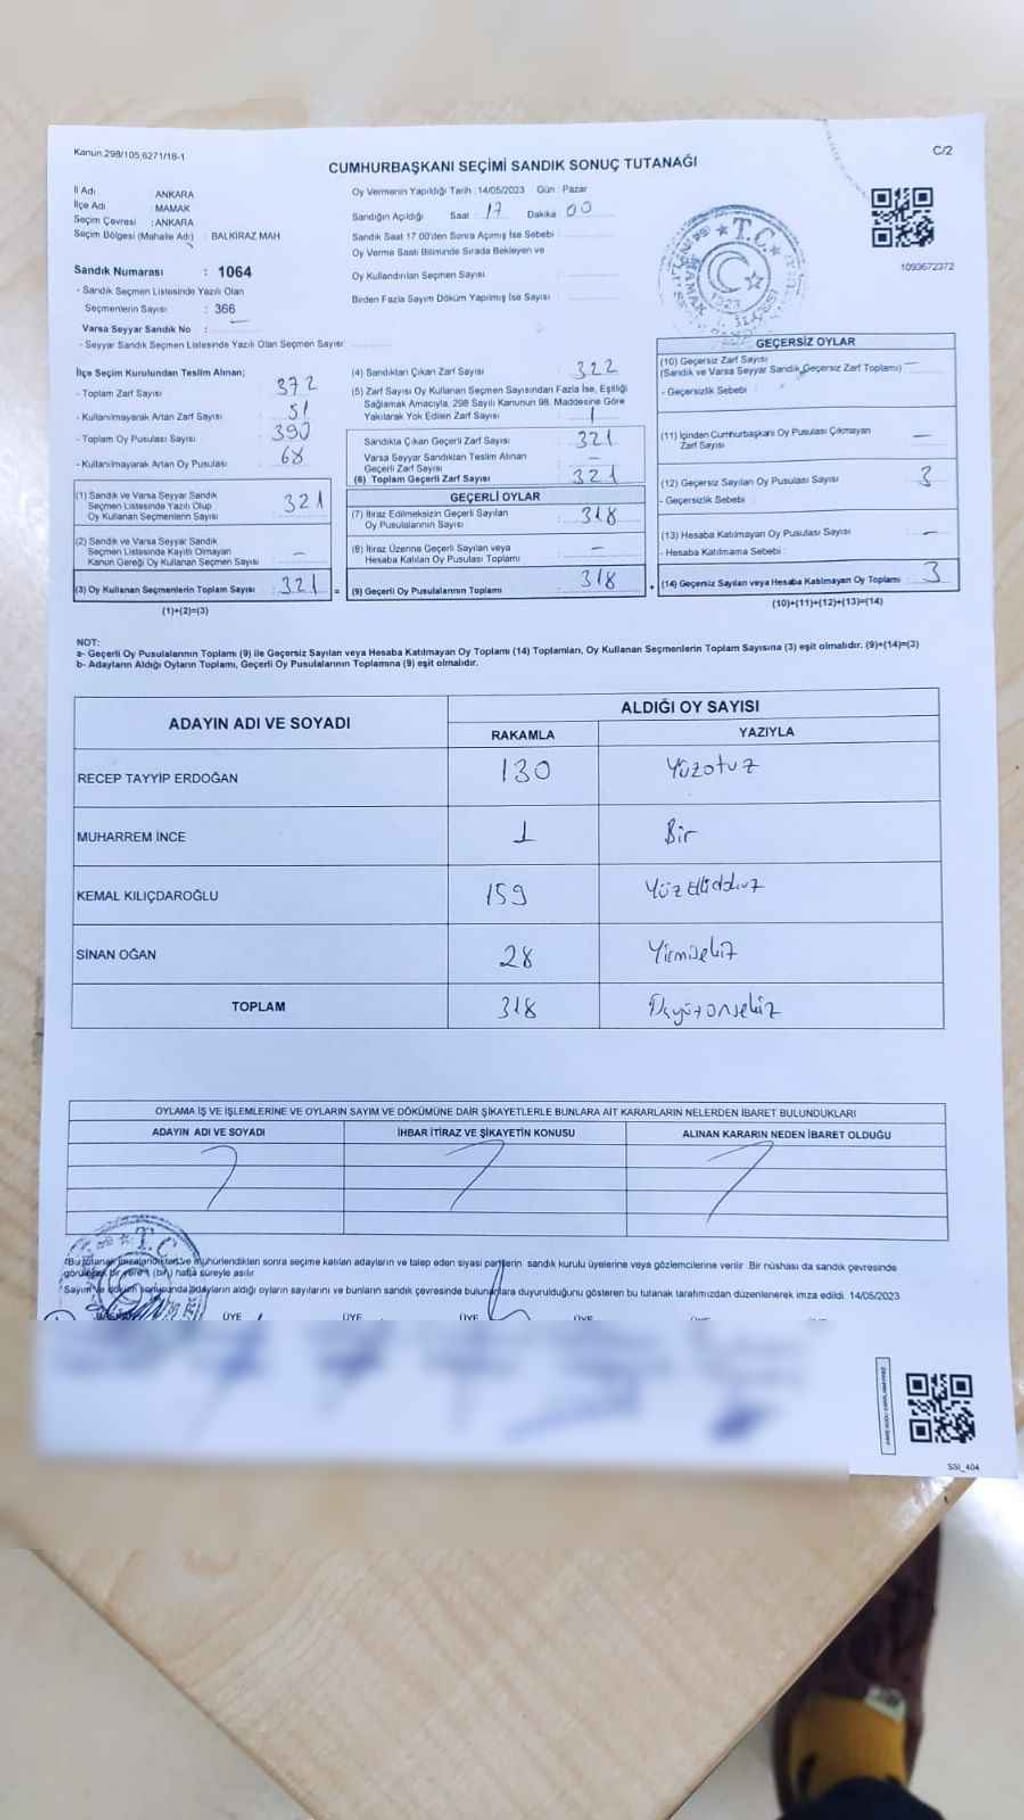 Kanun.298/105,6271/18-1
C/2
CUMHURBAŞKANI SEÇİMİ SANDIK SONUÇ TUTANAĞI
İl Adı ANKARA
İlçe Adı MAMAK
Seçim Çevresi : ANKARA
Seçim Bölgesi (Mahalle Adı) : BALKIRAZ MAH
Sandık Numarası : 1064
- Sandık Seçmen Listesinde Yazılı Olan
Seçmenlerin Sayısı : 366
Varsa Seyyar Sandık No :
- Seyyar Sandık Seçmen Listesinde Yazılı Olan Seçmen Sayısı
Oy Vermenin Yapıldığı Tarih : 14/05/2023 Gün : Pazar
Sandığın Açıldığı Saat 17 Dakika 00
Sandık Saat 17.00'den Sonra Açımış İse Sebebi
Oy Verme Saati Bitiminde Sırada Bekleyen ve
Oy Kullandırılan Seçmen Sayısı
Birden Fazla Sayım Döküm Yapılmış İse Sayısı
T.C.
MAMAK
1093672372
İlçe Seçim Kurulundan Teslim Alınan;
- Toplam Zarf Sayısı : 372
- Kullanılmayarak Artan Zarf Sayısı : 51
- Toplam Oy Pusulası Sayısı : 390
- Kullanılmayarak Artan Oy Pusulası : 68
(1) Sandık ve Varsa Seyyar Sandık
Seçmen Listesinde Yazılı Olup
Oy Kullanan Seçmenlerin Sayısı : 321
(2) Sandık ve Varsa Seyyar Sandık
Seçmen Listesinde Kayıtlı Olmayan
Kanun Gereği Oy Kullanan Seçmen Sayısı : -
(3) Oy Kullanan Seçmenlerin Toplam Sayısı : 321 =
(1)+(2)=(3)
(4) Sandıktan Çıkan Zarf Sayısı : 322
(5) Zarf Sayısı Oy Kullanan Seçmen Sayısından Fazla İse, Eşitliği
Sağlamak Amacıyla, 298 Sayılı Kanunun 98. Maddesine Göre
Yakılarak Yok Edilen Zarf Sayısı : 1
Sandıkta Çıkan Geçerli Zarf Sayısı : 321
Varsa Seyyar Sandıktan Teslim Alınan
Geçerli Zarf Sayısı : -
(6) Toplam Geçerli Zarf Sayısı : 321
GEÇERLİ OYLAR
(7) İtiraz Edilmeksizin Geçerli Sayılan
Oy Pusulalarının Sayısı : 318
(8) İtiraz Üzerine Geçerli Sayılan veya
Hesaba Katılan Oy Pusulası Toplamı : -
(9) Geçerli Oy Pusulalarının Toplamı : 318 +
GEÇERSİZ OYLAR
(10) Geçersiz Zarf Sayısı
(Sandık ve Varsa Seyyar Sandık Geçersiz Zarf Toplamı) -
- Geçersizlik Sebebi
(11) İçinden Cumhurbaşkanı Oy Pusulası Çıkmayan
Zarf Sayısı : -
(12) Geçersiz Sayılan Oy Pusulası Sayısı : 3
- Geçersizlik Sebebi
(13) Hesaba Katılmayan Oy Pusulası Sayısı : -
- Hesaba Katılmama Sebebi :
(14) Geçersiz Sayılan veya Hesaba Katılmayan Oy Toplamı : 3
(10)+(11)+(12)+(13)=(14)
NOT:
a- Geçerli Oy Pusulalarının Toplamı (9) ile Geçersiz Sayılan veya Hesaba Katılmayan Oy Toplamı (14) Toplamları, Oy Kullanan Seçmenlerin Toplam Sayısına (3) eşit olmalıdır. (9)+(14)=(3)
b- Adayların Aldığı Oyların Toplamı, Geçerli Oy Pusulalarının Toplamına (9) eşit olmalıdır.
ADAYIN ADI VE SOYADI ALDIĞI OY SAYISI
RAKAMLA YAZIYLA
RECEP TAYYİP ERDOĞAN 130 Yüzotuz
MUHARREM İNCE 1 Bir
KEMAL KILIÇDAROĞLU 159 Yüz Ellidokuz
SİNAN OĞAN 28 Yirmisekiz
TOPLAM 318 Üçyüzonsekiz
OYLAMA İŞ VE İŞLEMLERİNE VE OYLARIN SAYIM VE DÖKÜMÜNE DAİR ŞİKAYETLERLE BUNLARA AİT KARARLARIN NELERDEN İBARET BULUNDUKLARI
ADAYIN ADI VE SOYADI İHBAR İTİRAZ VE ŞİKAYETİN KONUSU ALINAN KARARIN NEDEN İBARET OLDUĞU
T.C.
*Bu tutanak imzalandıktan ve mühürlendikten sonra seçime katılan adayların ve talep eden siyasi partilerin sandık kurulu üyelerine veya gözlemcilerine verilir. Bir nüshası da sandık çevresinde
görülecek bir yere 1 (bir) hafta süreyle asılır
*Sayım ve döküm sonunda adayların aldığı oyların sayılarını ve bunların sandık çevresinde bulunanlara duyurulduğunu gösteren bu tutanak tarafımızdan düzenlenerek imza edildi. 14/05/2023
ÜYE ÜYE ÜYE ÜYE ÜYE
SSI_404